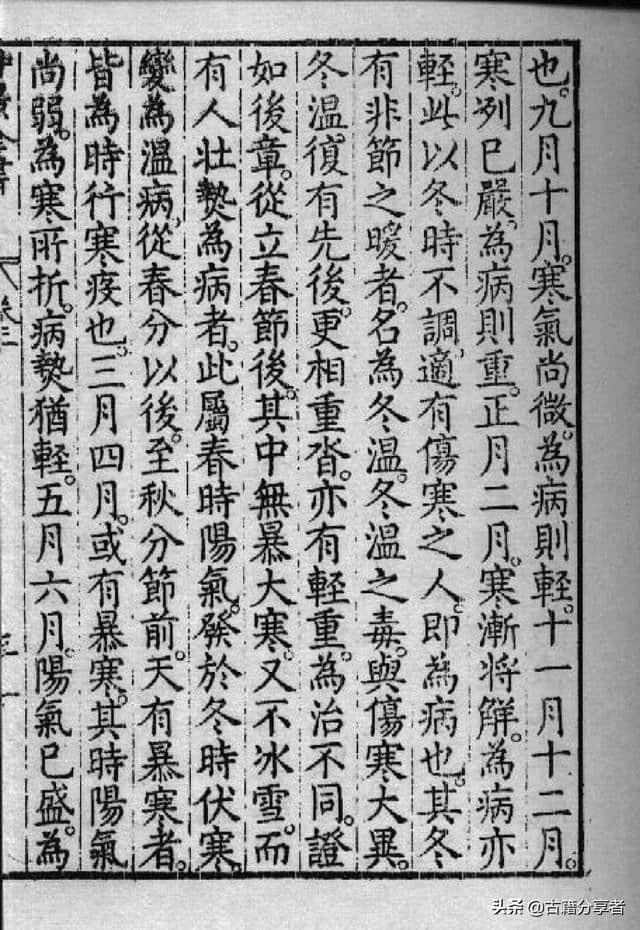 也。九月十月。寒氣尚微。為病則輕。十一月十二月。
寒列已嚴。為病則重。正月二月。寒漸將解。為病亦
輕。此以冬時不調。適有傷寒之人。即為病也。其冬
有非節之暖者。名為冬溫。冬溫之毒。與傷寒大異。
冬溫復有先後。更相重沓。亦有輕重。為治不同。證
如後章。從立春節後。其中無暴大寒。又不冰雪。而
有人壯熱為病者。此屬春時陽氣。發於冬時伏寒。
變為溫病。從春分以後。至秋分節前。天有暴寒者。
皆為時行寒疫也。三月四月。或有暴寒。其時陽氣
尚弱。為寒所折。病熱猶輕。五月六月。陽氣已盛。為
头条 @古籍分享者